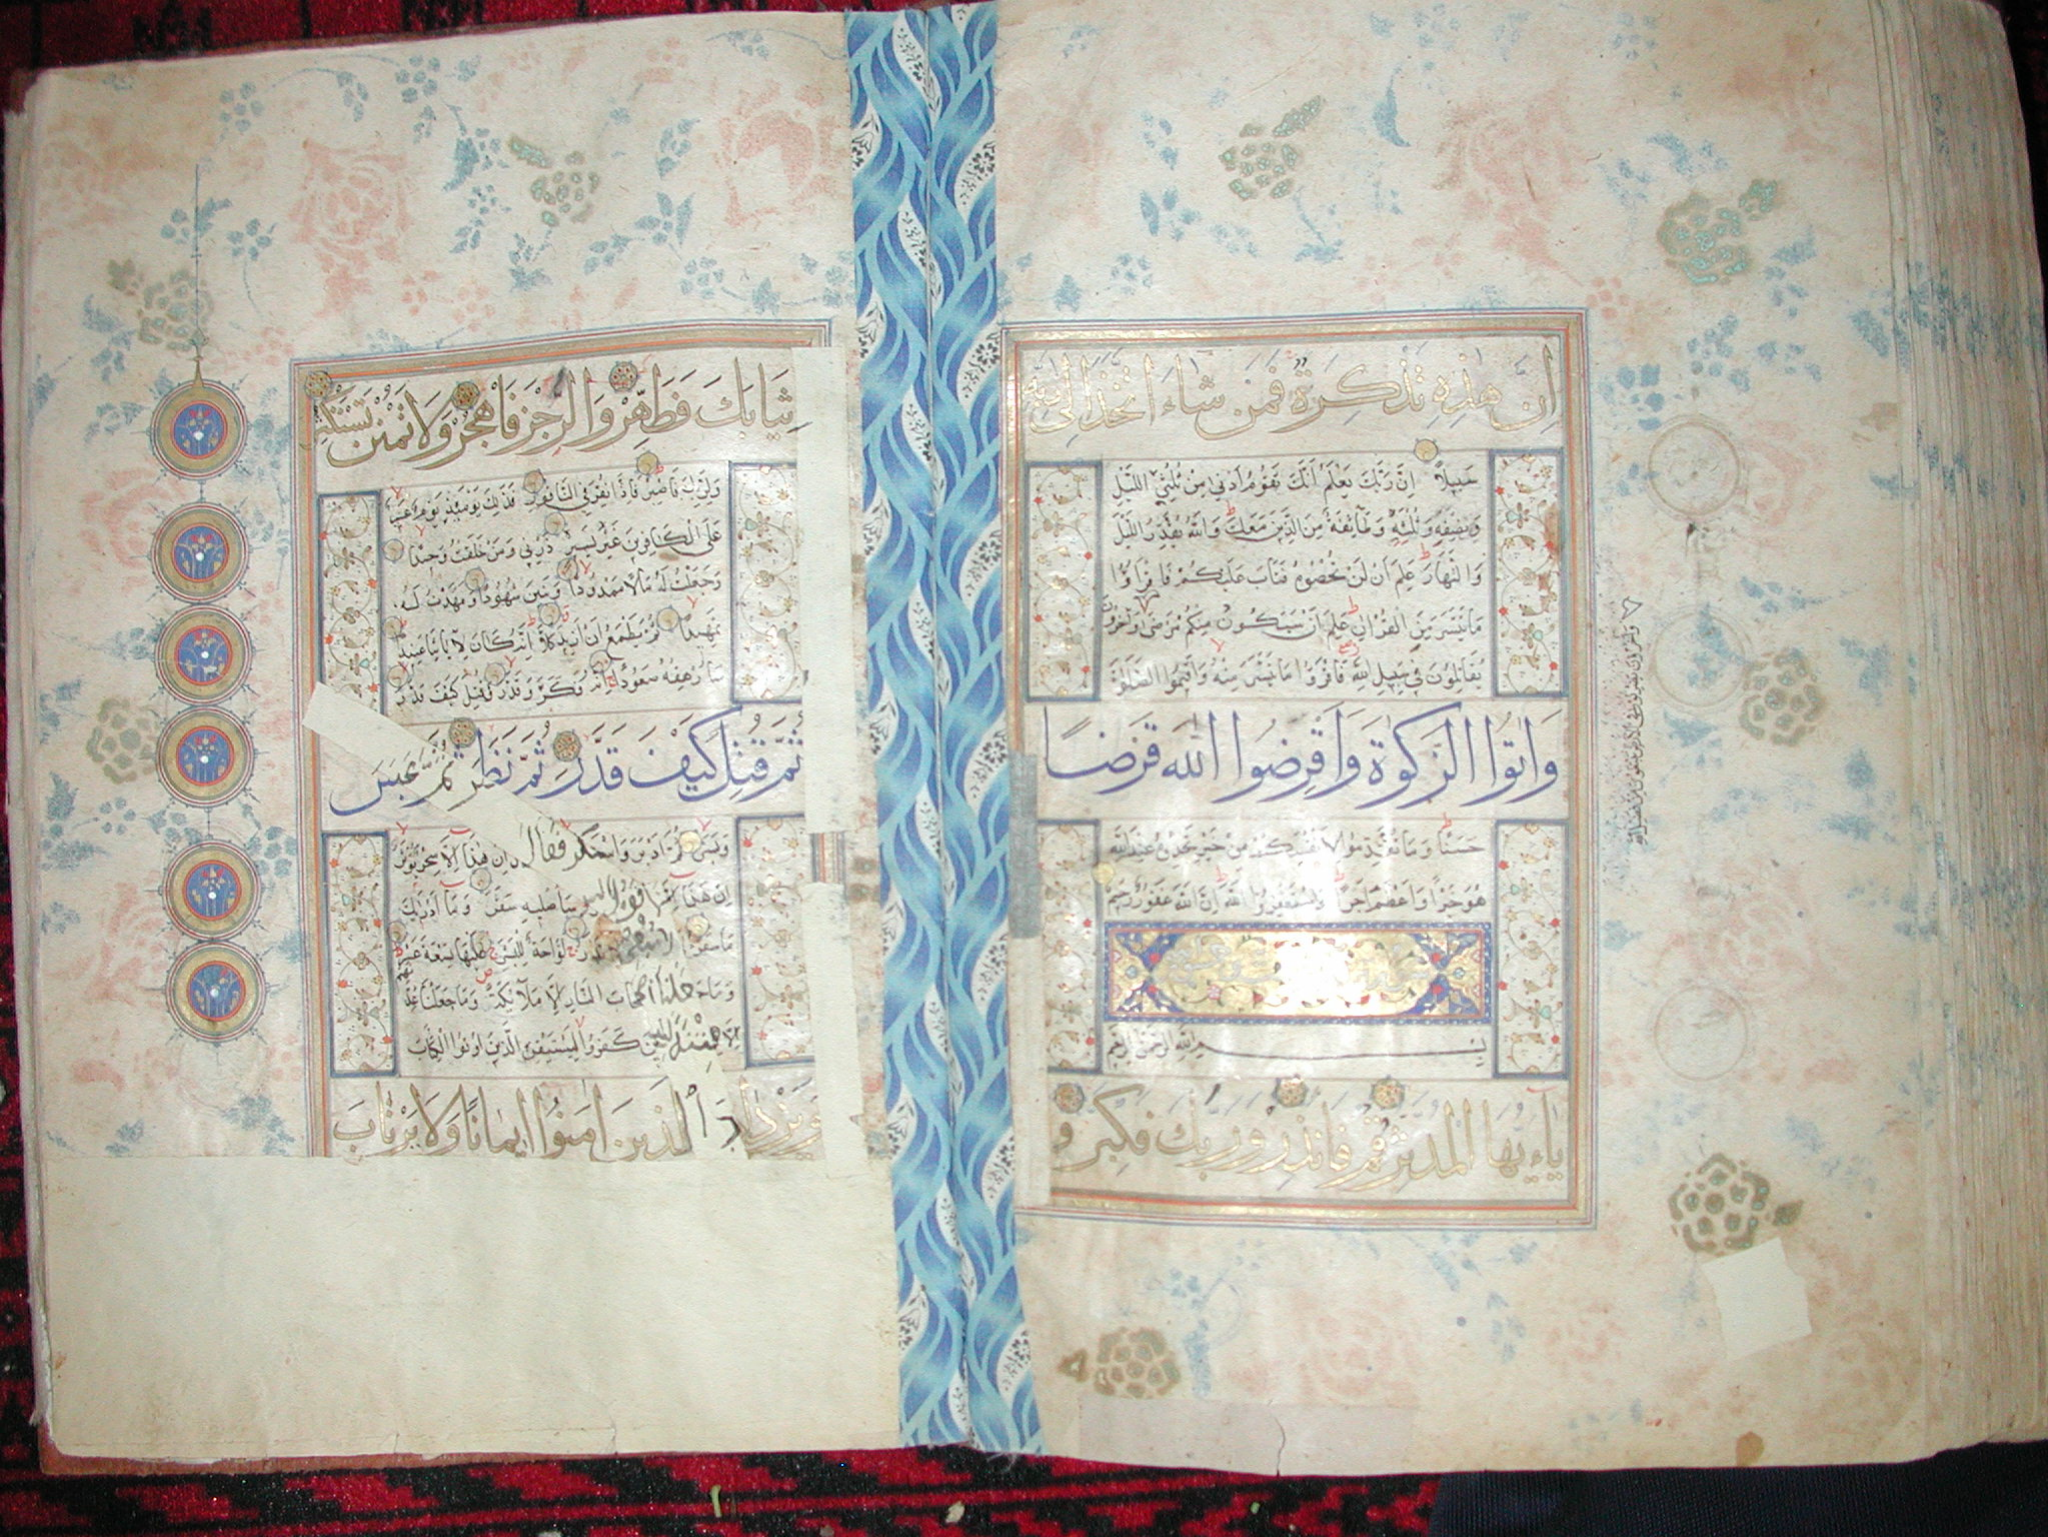 اِنَّ هٰذِهِ تَذْكِرَةٌ فَمَنْ شَاءَ اتَّخَذَ اِلٰى رَبِّهِ
سَبِيلًا اِنَّ رَبَّكَ يَعْلَمُ اَنَّكَ تَقُومُ اَدْنٰى مِنْ ثُلُثَيِ اللَّيْلِ
وَنِصْفَهُ وَثُلُثَهُ وَطَائِفَةٌ مِنَ الَّذِينَ مَعَكَ وَاللّٰهُ يُقَدِّرُ اللَّيْلَ
وَالنَّهَارَ عَلِمَ اَنْ لَنْ تُحْصُوهُ فَتَابَ عَلَيْكُمْ فَاقْرَؤُا
مَا تَيَسَّرَ مِنَ الْقُرْاٰنِ عَلِمَ اَنْ سَيَكُونُ مِنْكُمْ مَرْضٰى وَاٰخَرُونَ
يُقَاتِلُونَ فِي سَبِيلِ اللّٰهِ فَاقْرَؤُا مَا تَيَسَّرَ مِنْهُ وَاَقِيمُوا الصَّلٰوةَ
وَاٰتُوا الزَّكٰوةَ وَاَقْرِضُوا اللّٰهَ قَرْضًا
حَسَنًا وَمَا تُقَدِّمُوا لِاَنْفُسِكُمْ مِنْ خَيْرٍ تَجِدُوهُ عِنْدَ اللّٰهِ
هُوَ خَيْرًا وَاَعْظَمَ اَجْرًا وَاسْتَغْفِرُوا اللّٰهَ اِنَّ اللّٰهَ غَفُورٌ رَحِيمٌ
بسم الله الرحمن الرحيم
يَا اَيُّهَا الْمُدَّثِّرُ قُمْ فَاَنْذِرْ وَرَبَّكَ فَكَبِّرْ وَ
وَاٰخَرُونَ يَضْرِبُونَ فِي الْاَرْضِ يَبْتَغُونَ مِنْ فَضْلِ اللّٰهِ
ثِيَابَكَ فَطَهِّرْ وَالرُّجْزَ فَاهْجُرْ وَلَا تَمْنُنْ تَسْتَكْثِرُ
وَلِرَبِّكَ فَاصْبِرْ فَاِذَا نُقِرَ فِي النَّاقُورِ فَذٰلِكَ يَوْمَئِذٍ يَوْمٌ عَسِيرٌ
عَلَى الْكَافِرِينَ غَيْرُ يَسِيرٍ ذَرْنِي وَمَنْ خَلَقْتُ وَحِيدًا
وَجَعَلْتُ لَهُ مَالًا مَمْدُودًا وَبَنِينَ شُهُودًا وَمَهَّدْتُ لَهُ
تَمْهِيدًا ثُمَّ يَطْمَعُ اَنْ اَزِيدَ كَلَّا اِنَّهُ كَانَ لِاٰيَاتِنَا عَنِيدًا
سَاُرْهِقُهُ صَعُودًا اِنَّهُ فَكَّرَ وَقَدَّرَ فَقُتِلَ كَيْفَ قَدَّرَ
ثُمَّ قُتِلَ كَيْفَ قَدَّرَ ثُمَّ نَظَرَ ثُمَّ عَبَسَ
وَبَسَرَ ثُمَّ اَدْبَرَ وَاسْتَكْبَرَ فَقَالَ اِنْ هٰذَا اِلَّا سِحْرٌ يُؤْثَرُ
اِنْ هٰذَا اِلَّا قَوْلُ الْبَشَرِ سَاُصْلِيهِ سَقَرَ وَمَا اَدْرٰيكَ
مَا سَقَرُ لَا تُبْقِي وَلَا تَذَرُ لَوَّاحَةٌ لِلْبَشَرِ عَلَيْهَا تِسْعَةَ عَشَرَ
وَمَا جَعَلْنَا اَصْحَابَ النَّارِ اِلَّا مَلٰئِكَةً وَمَا جَعَلْنَا عِدَّتَهُمْ
اِلَّا فِتْنَةً لِلَّذِينَ كَفَرُوا لِيَسْتَيْقِنَ الَّذِينَ اُوتُوا الْكِتَابَ
وَيَزْدَادَ الَّذِينَ اٰمَنُوا اِيمَانًا وَلَا يَرْتَابَ